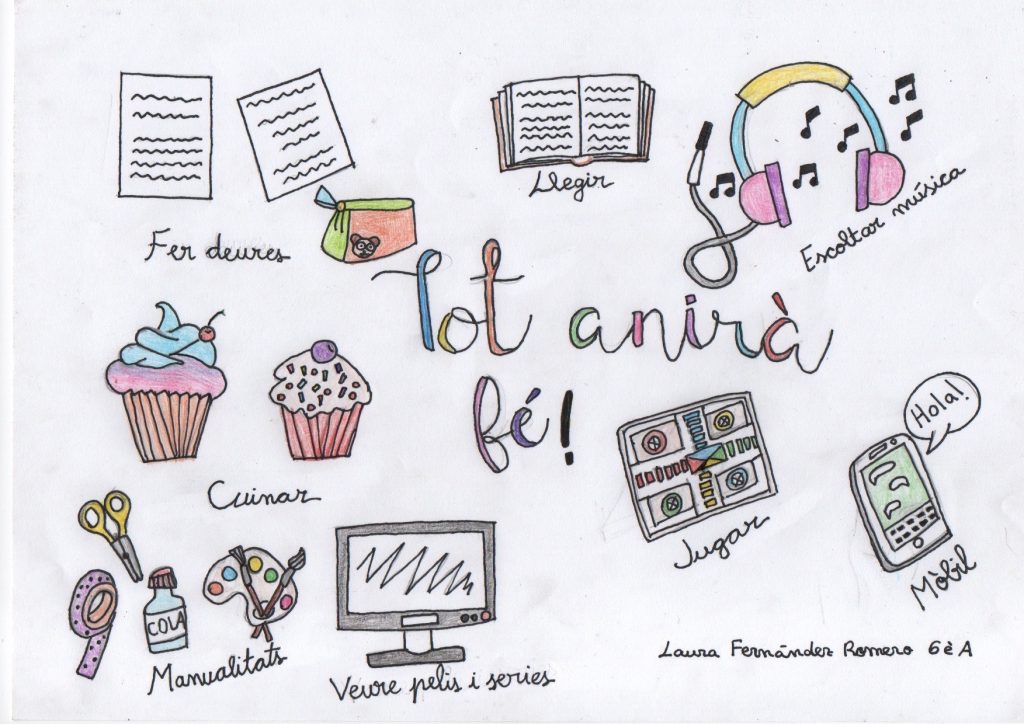 Llegir
Escoltar música
Fer deures
Tot anirà
fé!
Hola!
Cuinar
Jugar
Mòbil
COLA
Manualitats
Veure pelis i series
Laura Fernández Romero 6è A